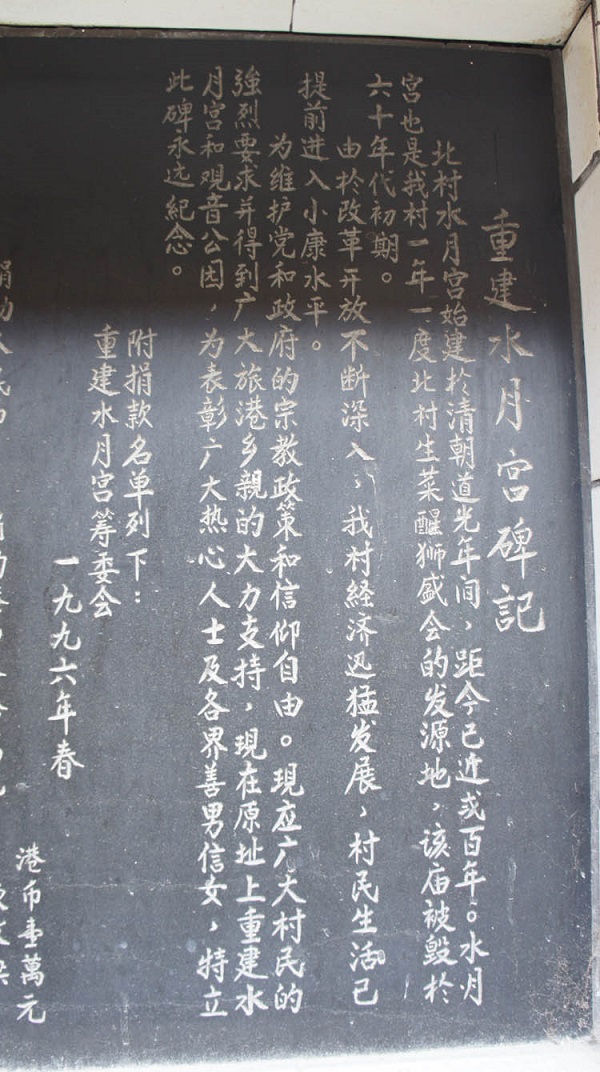 重建水月宫碑記
北村水月宫始建於清朝道光年间，距今已近弍百年。水月
宫也是我村一年一度北村生菜醒狮盛会的发源地，该庙被毁於
六十年代初期。
由於改革开放不断深入，我村経济迅猛发展，村民生活已
提前进入小康水平。
为维护党和政府的宗教政策和信仰自由。现应广大村民的
強烈要求并得到广大旅港乡親的大力支持，現在原址上重建水
月宫和观音公园，为表彰广大热心人士及各界善男信女，特立
此碑永远紀念。
附捐款名单列下：
重建水月宫筹委会
一九九六年春
港币壹萬元